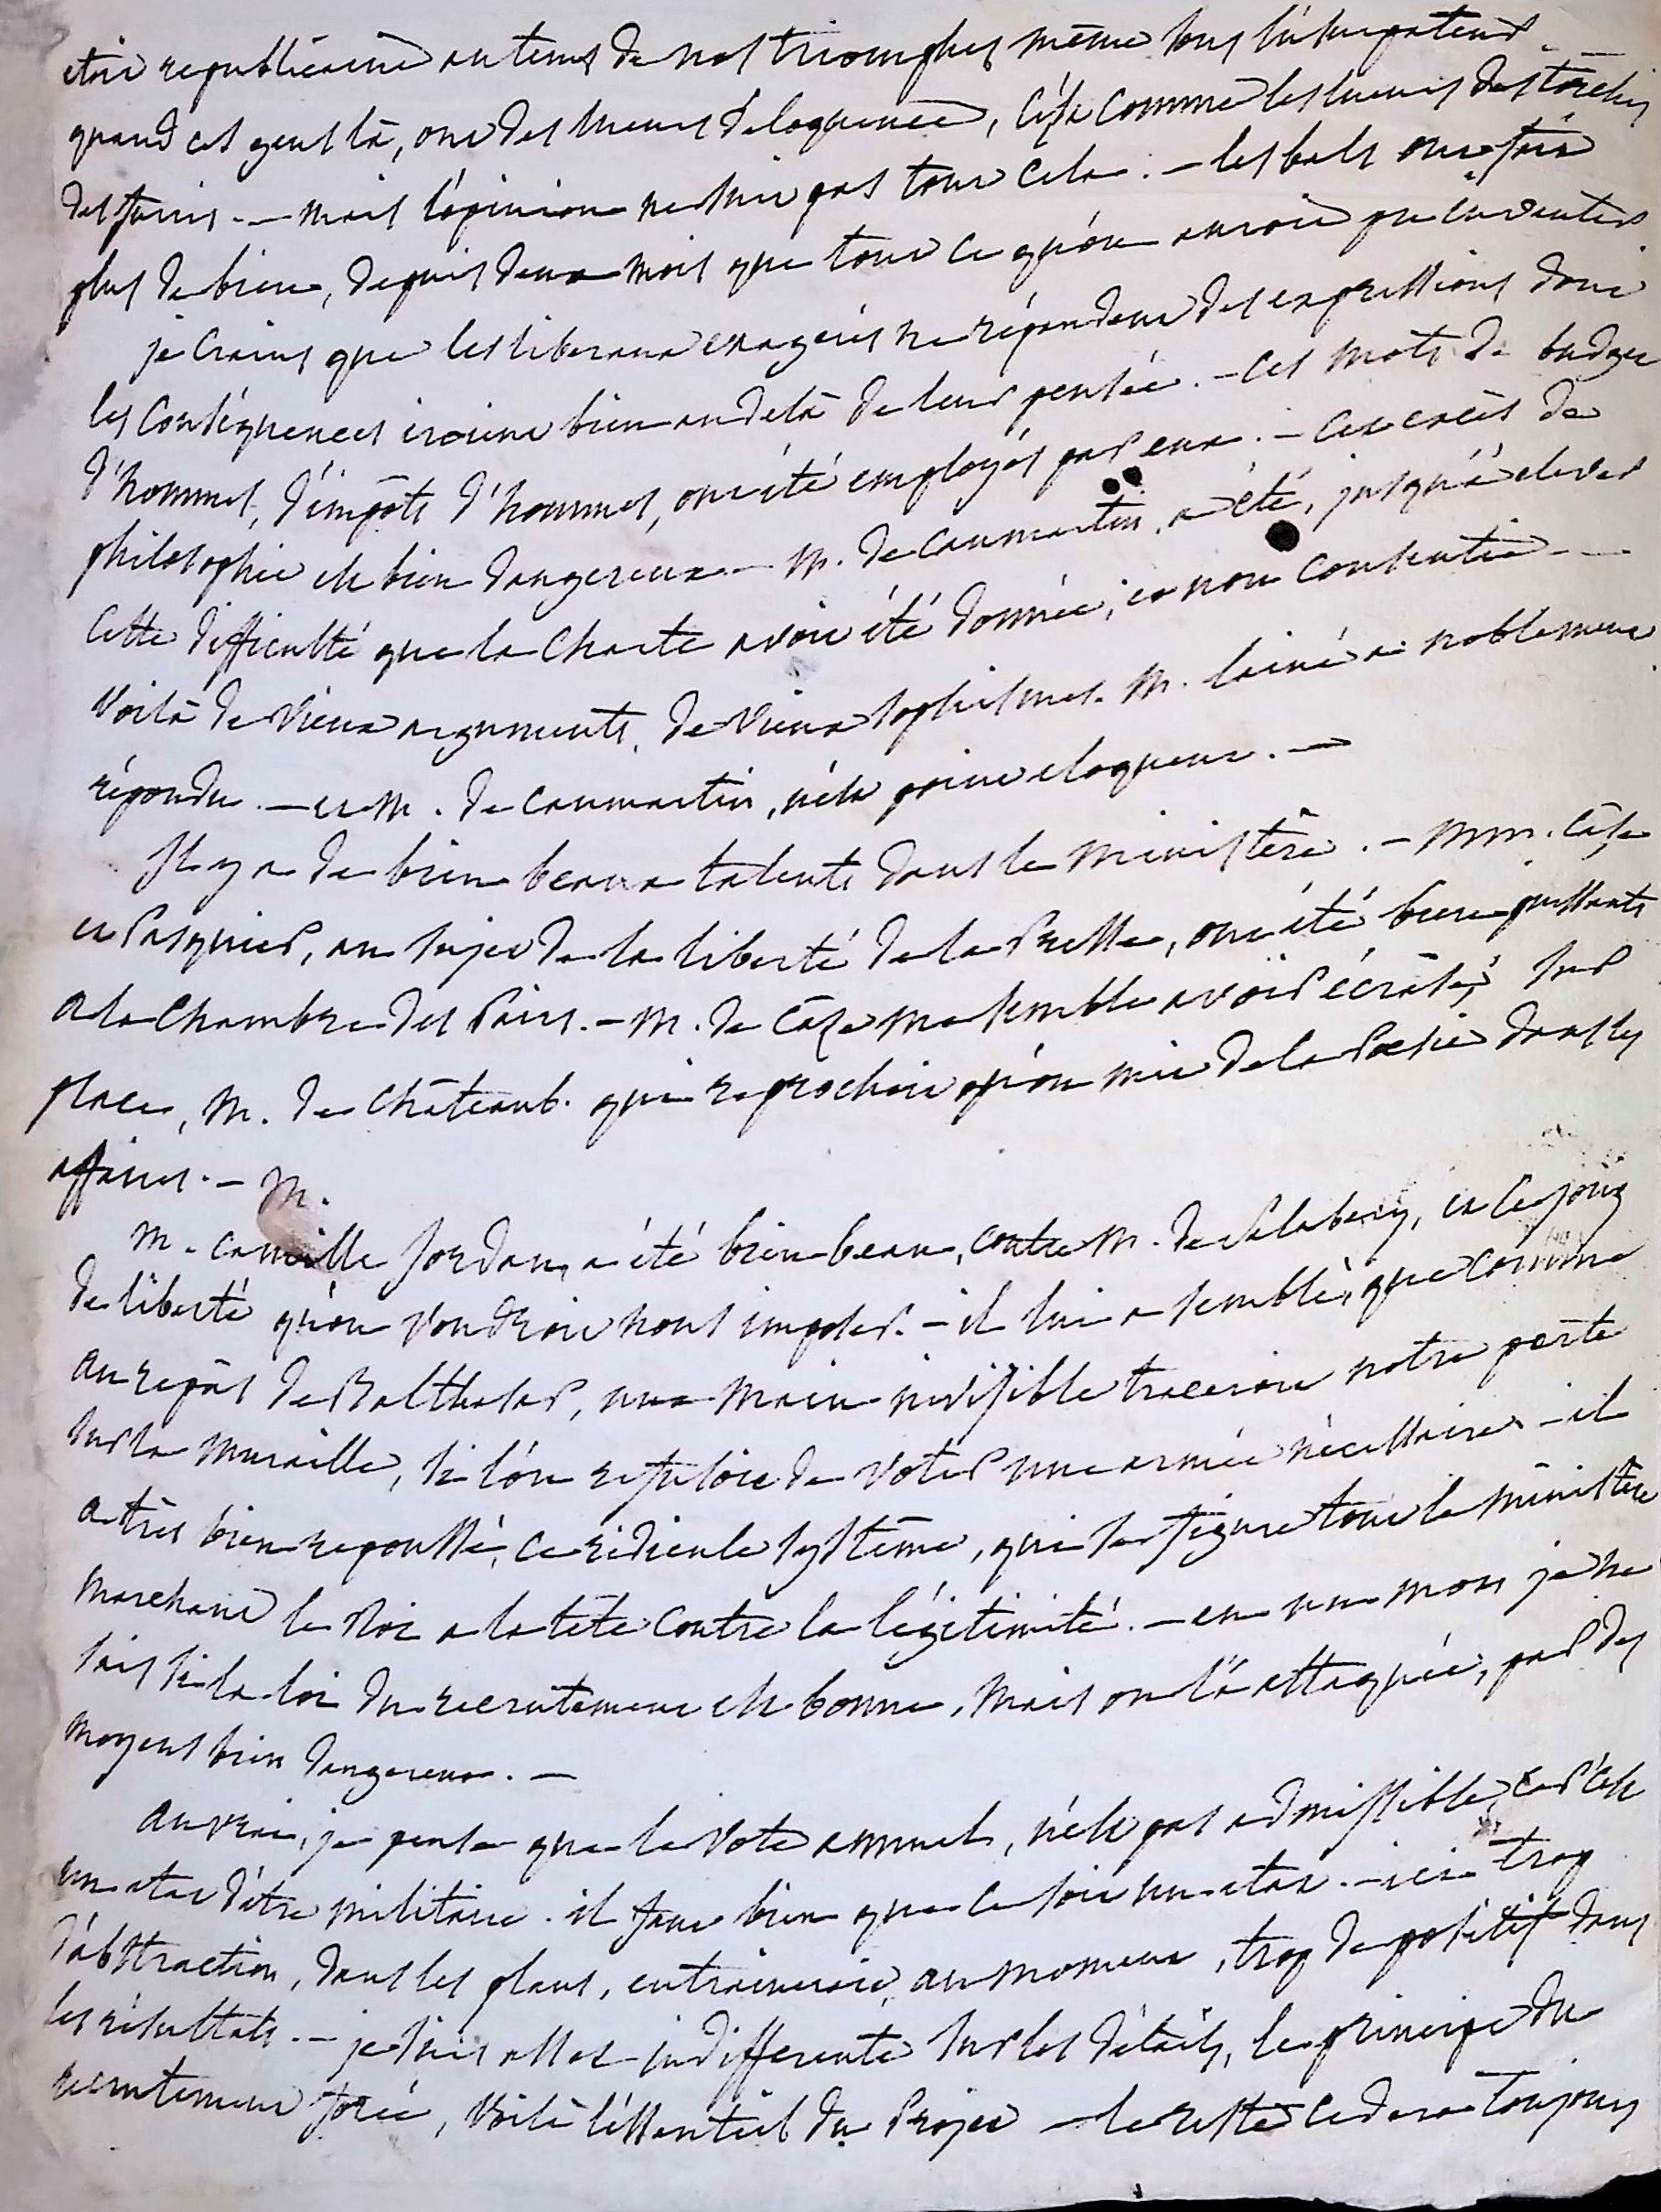 etoit republicaine au tems de nos triomphes même sous l'usurpateur.
quand ces gens là, ont des lueurs d'eloquence, c'est comme les lueurs des torches
des furies. — mais l'opinion ne suit pas tout cela. — les bals ont fait
plus de bien, depuis deux mois que tout ce qu'on auroit pu inventer
je crains que les liberaux exagerés ne répandent des expressions dont
les conséquences iroient bien au delà de leur pensée. — ces mots de budget
d'hommes, d'impôts d'hommes, ont été employés par eux. — cet excès de
philosophie est bien dangereux — M. de Caumartin, a été, jusqu'à elever
cette difficulté que la Charte avoit été donnée, et non consentie —
voilà de vieux arguments, de vieux sophismes. M. lainé a noblement
répondu. — et M. de Caumartin, n'est point eloquent. —
Il y a de bien beaux talents dans le ministère. — MM. Caze
et Pasquier, au sujet de la liberté de la Presse, ont été bien puissants
a la Chambre des Pairs. — M. de Caze me semble avoir écrasé, sur
place, M. de Châteaub. qui reprochoit qu'on mit de la Poesie dans les
affaires. — M.
M. Camille Jordan, a été bien beau, contre M. de Salabery, et le joug
de liberté qu'on voudroit nous imposer. — il lui a semblé, que comme
au repas de Balthasar, une main invisible traceroit notre perte
sur la muraille, si l'on refusoit de voter une armée nécessaire — il
a très bien repoussé, ce ridicule système, qui se figure tout le ministère
marchant le Roi a la tête contre la légitimité. — en un mot je ne
sais si la loi du recrutement est bonne, mais on l'a attaquée, par des
moyens bien dangereux. —
au vrai, je pense que le vote annuel, n'est pas admissible, car c'est
un etat d'être militaire. il faut bien que ce soit un etat. — ici trop
d'abstraction, dans les plans, entraineroit, au moment, trop de positif dans
les résultats. — je suis assez indifferente sur les détails, le principe du
recrutement forcé, voilà l'essentiel du Projet — le reste cedera toujours